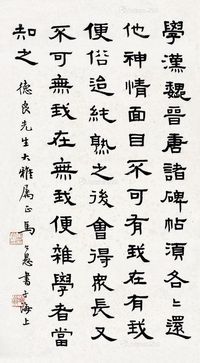 學漢魏晉唐諸碑帖須各各還
他神情面目不可有我在有我
便俗迨純熟之後會得衆長又
不可無我在無我便雜學者當
知之
億良先生大雅屬正馬公愚書于海上